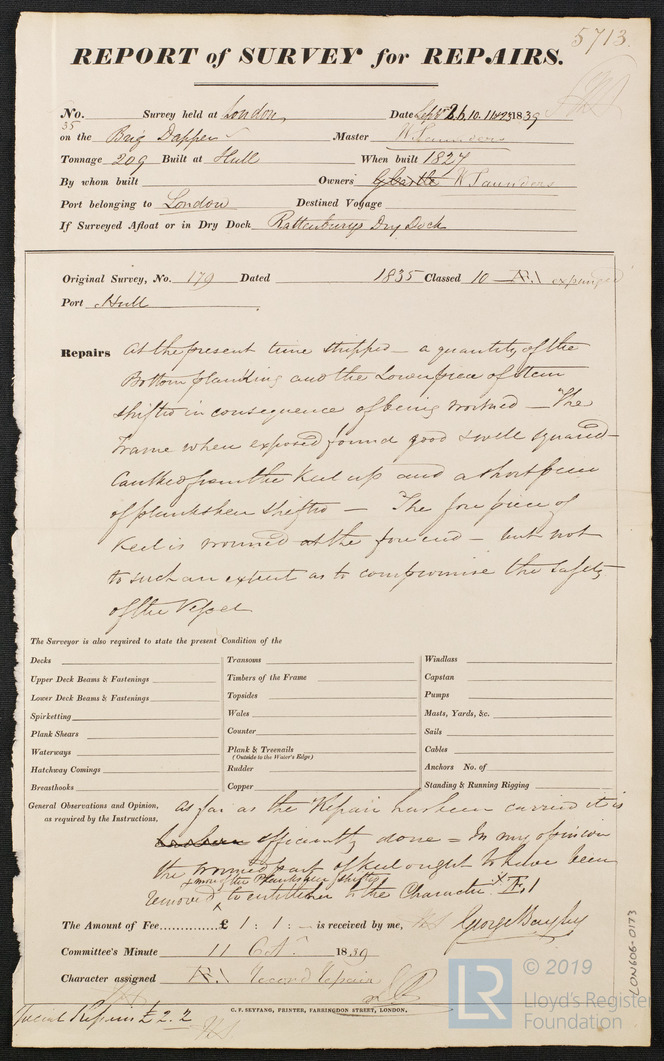 5713
REPORT of SURVEY for REPAIRS.
No. 35 Survey held at London, Date Sept 1839
on the Brig Dapper Master W Saunders
Tonnage 209 Built at Hull When built 1827
By whom built Owners W Saunders
Port belonging to London Destined Voyage
If Surveyed Afloat or in Dry Dock Rattenburys Dry Dock
Original Survey, No. 179 Dated 1835 Classed 10 Æ.1 expunged
Port Hull
Repairs At the present time stripped — a quantity of the
Bottom planking and the Lower piece of Stem
shifted in consequence of being wormed — The
Frame when exposed found good & well squared —
Caulked from the Keel up and a short piece
of planksheer shifted — The fore piece of
Keel is wormed at the fore end — but not
to such an extent as to compromise the safety
of the Vessel
The Surveyor is also required to state the present Condition of the
Decks Transoms Windlass
Upper Deck Beams & Fastenings Timbers of the Frame Capstan
Lower Deck Beams & Fastenings Topsides Pumps
Spirketting Wales Masts, Yards, &c.
Plank Shears Counter Sails
Waterways Plank & Treenails (Outside to the Water's Edge) Cables
Hatchway Comings Rudder Anchors No. of
Breasthooks Copper Standing & Running Rigging
General Observations and Opinion, as required by the Instructions.
As far as the Repair has been carried it is
efficiently done = In my opinion
the wormed part of Keel ought to have been
& more of the Planksheer shifted
removed to entitle her to the Character Æ 1
The Amount of Fee..............£ 1 : 1 : — is received by me, George Bayley
Committee's Minute 11 Oct. 1839
Character assigned Æ.1 Record Repairs
C. F. SEYFANG, PRINTER, FARRINGDON STREET, LONDON.
Repairs £ 2.2
LON606-0173
LR
© 2019
Lloyd's Register
Foundation